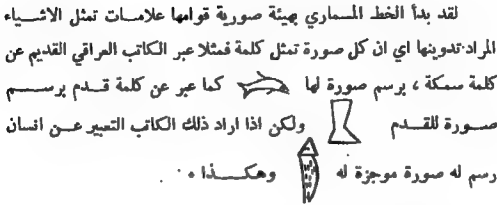 لقد بدأ الخط المسماري بهيئة صورية قوامها علامات تمثل الاشياء
المراد تدوينها اي ان كل صورة تمثل كلمة فمثلا عبر الكاتب العراقي القديم عن
كلمة سمكة ، برسم صورة لها كما عبر عن كلمة قدم برسم
صورة للقدم ولكن اذا اراد ذلك الكاتب التعبير عن انسان
رسم له صورة موجزة له وهكذا ٠